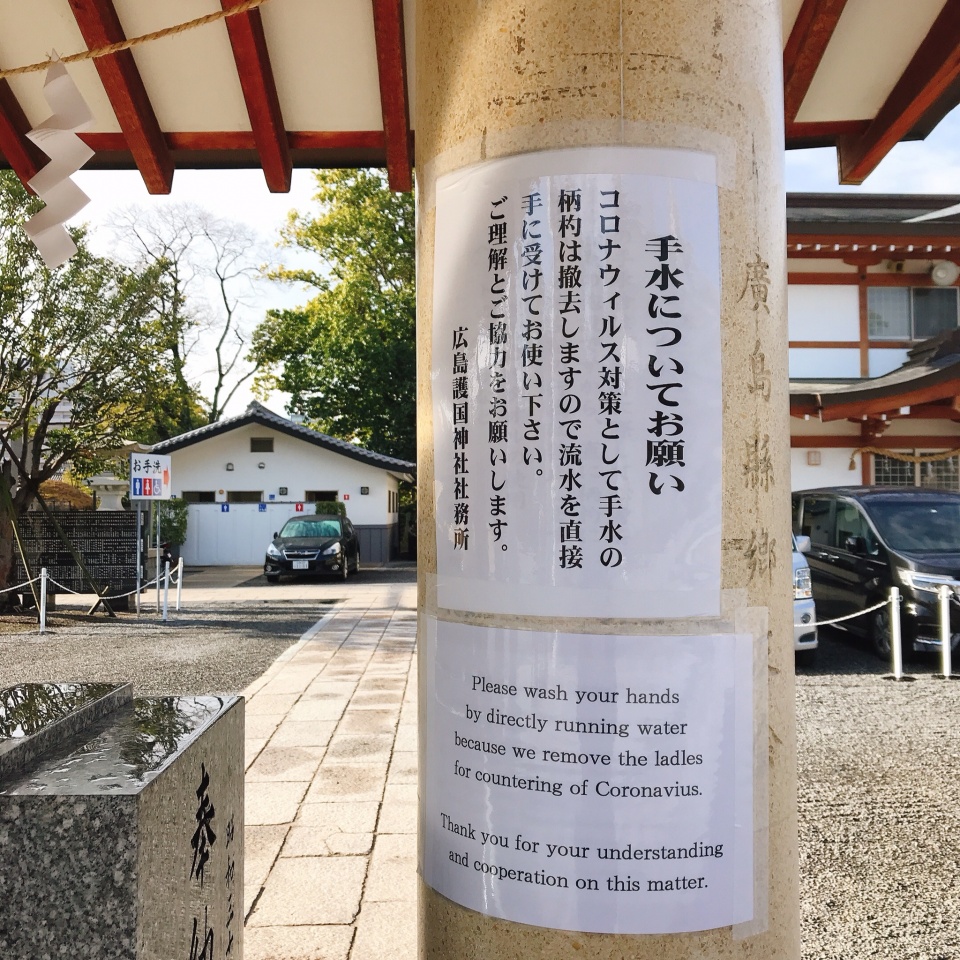 手水についてお願い
コロナウィルス対策として手水の
柄杓は撤去しますので流水を直接
手に受けてお使い下さい。
ご理解とご協力をお願いします。
広島護国神社社務所
Please wash your hands
by directly running water
because we remove the ladles
for countering of Coronavius.
Thank you for your understanding
and cooperation on this matter.
廣島縣郷
お手洗
奉